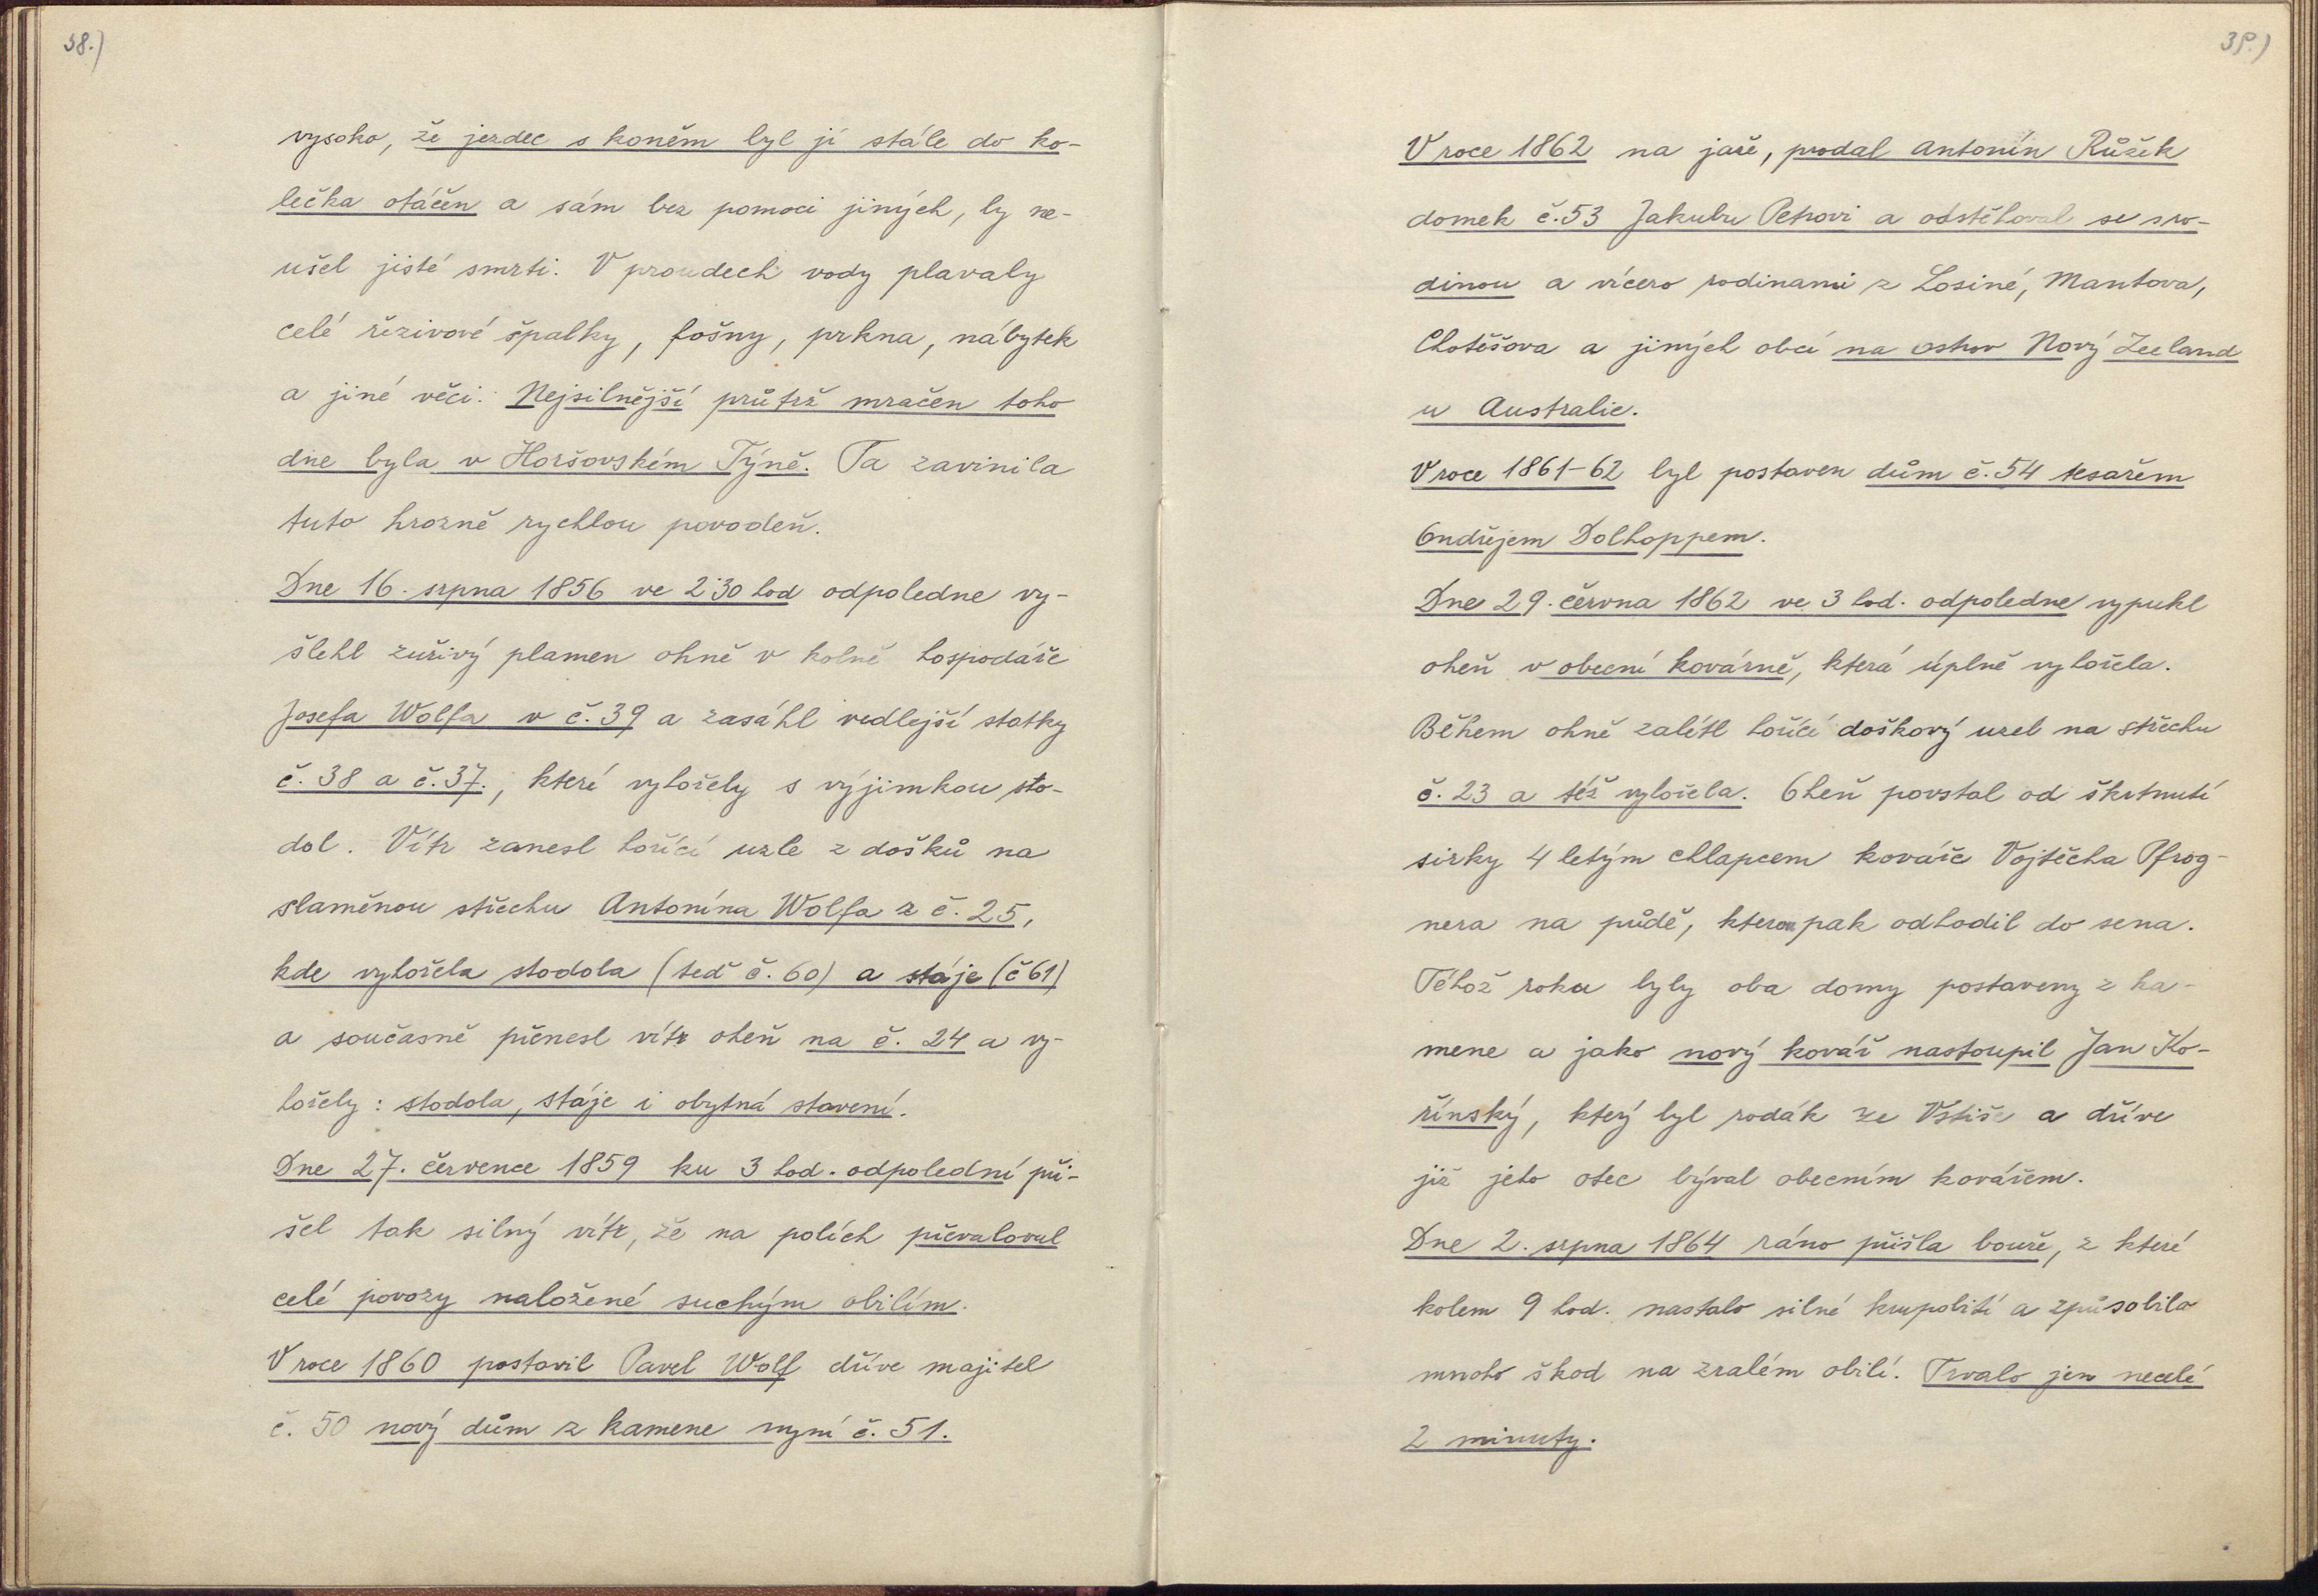 38.)
vysoko, že jezdec s koněm byl jí stále do ko-
lečka otáčen a sám bez pomoci jiných, by ne-
ušel jisté smrti. V proudech vody plavaly
celé řezivové špalky, fošny, prkna, nábytek
a jiné věci. Nejsilnější průtrž mračen toho
dne byla v Horšovském Týně. Ta zavinila
tuto hrozně rychlou povodeň.
Dne 16. srpna 1856 ve 2·30 hod odpoledne vy-
šlehl zuřivý plamen ohně v kolně hospodáře
Josefa Wolfa v č. 39 a zasáhl vedlejší statky
č. 38 a č. 37., které vyhořely s výjimkou sto-
dol. Vítr zanesl hořící uzle z došků na
slaměnou střechu Antonína Wolfa z č. 25,
kde vyhořela stodola (teď č. 60) a stáje (č 61)
a současně přenesl vítr oheň na č. 24 a vy-
hořely: stodola, stáje i obytná stavení.
Dne 27. července 1859 ku 3 hod. odpolední při-
šel tak silný vítr, že na polích převaloval
celé povozy naložené suchým obilím.
V roce 1860 postavil Pavel Wolf dříve majitel
č. 50 nový dům z kamene nyní č. 51.
39.)
V roce 1862 na jaře, prodal Antonín Růžek
domek č. 53 Jakubu Petrovi a odstěhoval se s ro-
dinou a vícero rodinami z Losiné, Mantova,
Chotěšova a jiných obcí na ostrov Nový Zeeland
u Australie.
V roce 1861-62 byl postaven dům č. 54 tesařem
Ondřejem Dolhoppem.
Dne 29. června 1862 ve 3 hod. odpoledne vypukl
oheň v obecní kovárně, která úplně vyhořela.
Během ohně zalétl hořící doškový uzel na střechu
č. 23 a též vyhořela. Oheň povstal od škrtnutí
sirky 4 letým chlapcem kováře Vojtěcha Pfrog-
nera na půdě, kterou pak odhodil do sena.
Téhož roku byly oba domy postaveny z ka-
mene a jako nový kovář nastoupil Jan Ko-
řínský, který byl rodák ze Vstiše a dříve
již jeho otec býval obecním kovářem.
Dne 2. srpna 1864 ráno přišla bouře, z které
kolem 9 hod. nastalo silné krupobití a způsobila
mnoho škod na zralém obilí. Trvalo jen necelé
2 minuty.